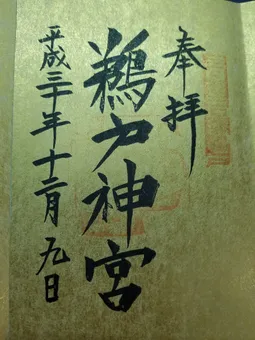 奉拝
鵜戸神宮
平成三十年十二月九日